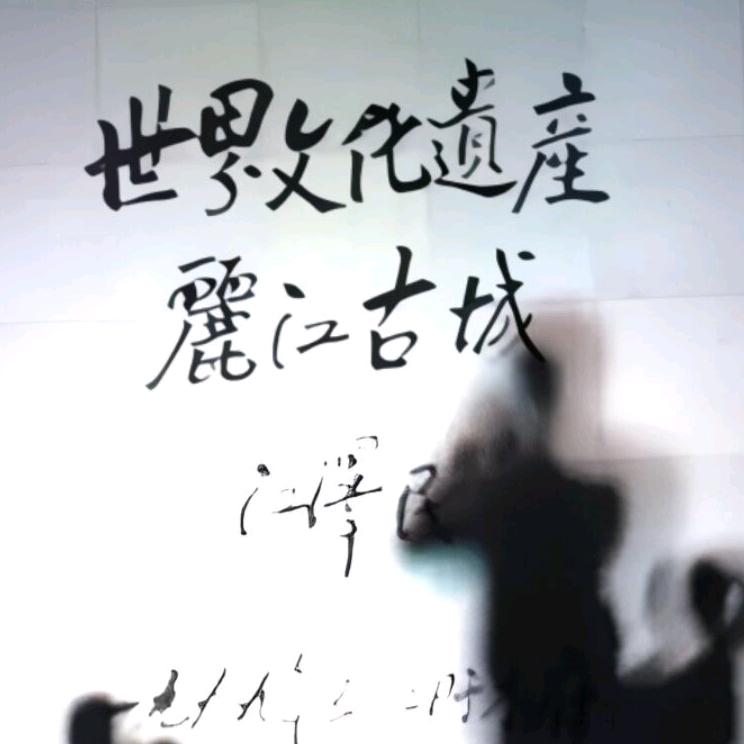 世界文化遺産
麗江古城
江澤民